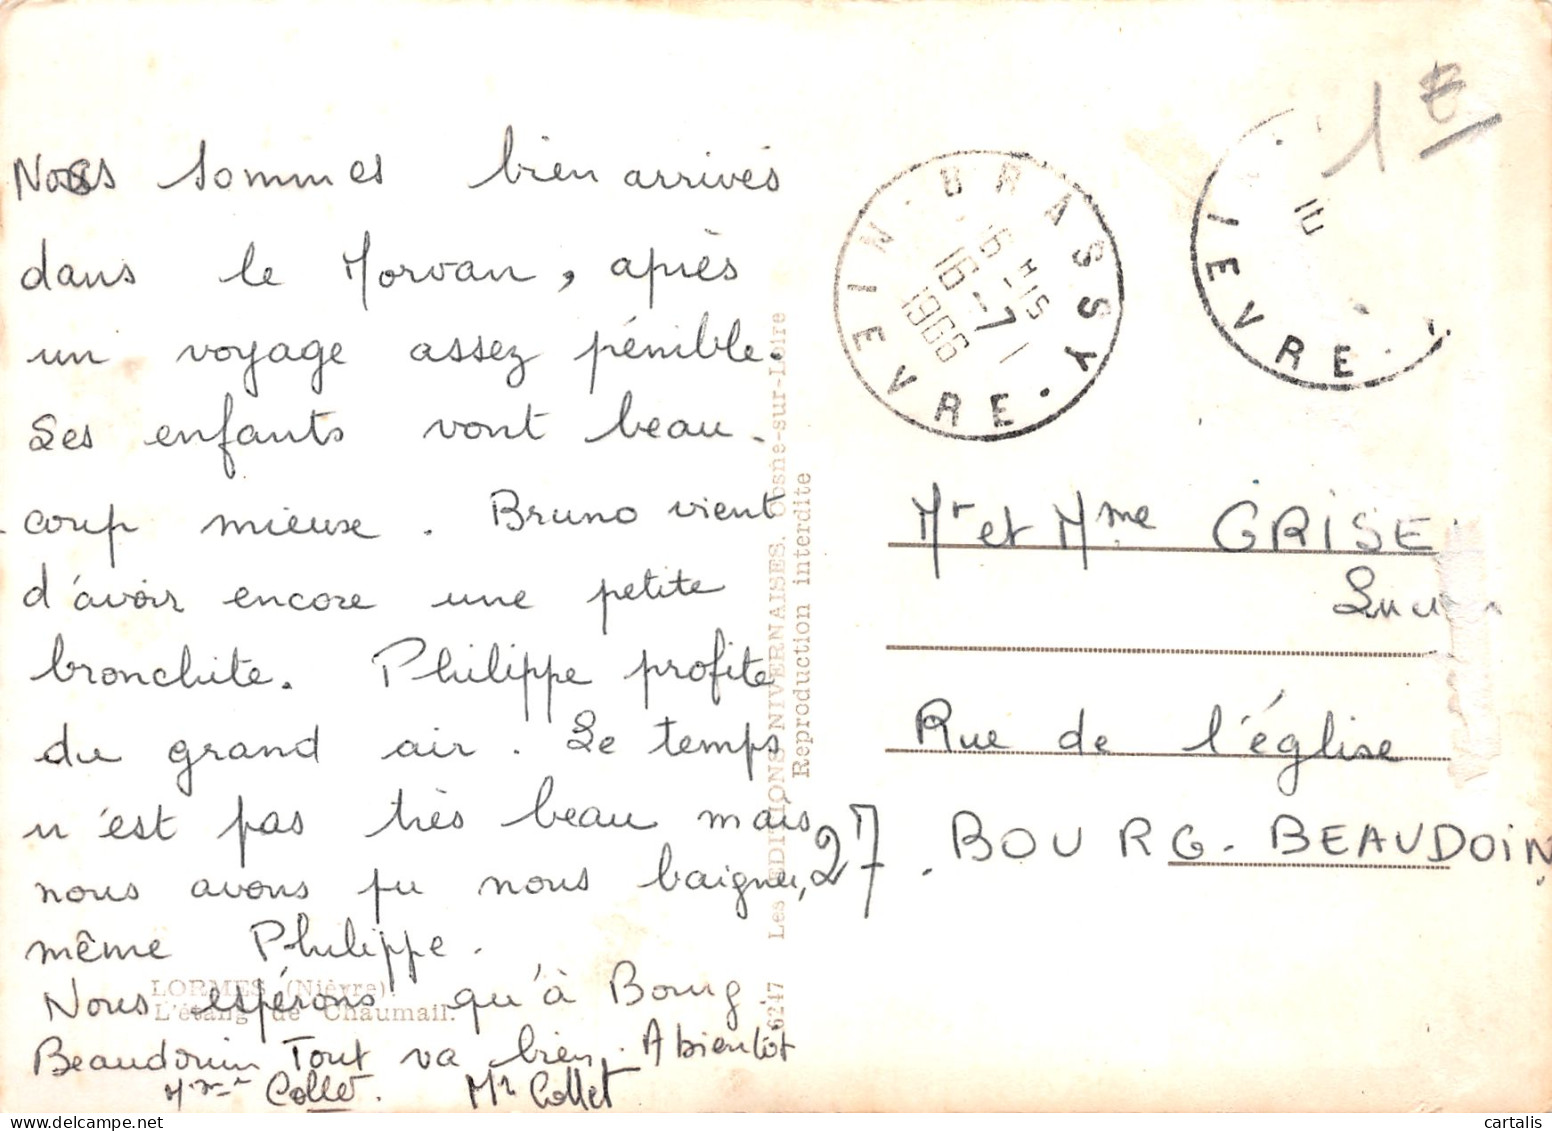 Nous sommes bien arrivés
dans le Morvan, après
un voyage assez pénible.
Les enfants vont beau-
coup mieux. Bruno vient
d'avoir encore une petite
bronchite. Philippe profite
du grand air. Le temps
n'est pas très beau mais
nous avons pu nous baigner,
même Philippe.
Nous espérons qu'à Bourg
Beaudouin Tout va bien. A bientôt
Mme Collet. Mr Collet
LORMES (Nièvre).
L'étang de Chaumail.
6247 Les EDITIONS NIVERNAISES. Cosne-sur-Loire
Reproduction interdite
BRASSY
16 H 15
16-7
1966
NIEVRE
IEVRE
1€
Mr et Mme GRISE
Rue de l'église
27. BOURG-BEAUDOIN.
cartalis